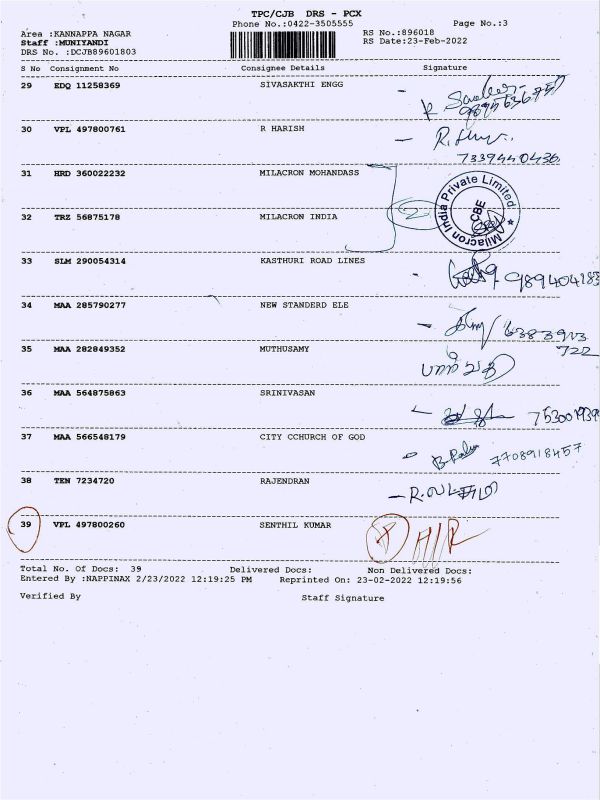 TPC/CJB DRS - PCX
Phone No.:0422-3505555
Page No.:3
Area :KANNAPPA NAGAR
RS No.:896018
Staff :MUNIYANDI
RS Date:23-Feb-2022
DRS No. :DCJB89601803
S No Consignment No Consignee Details Signature
29 EDQ 11258369 SIVASAKTHI ENGG
30 VPL 497800761 R HARISH
7339440436
31 HRD 360022232 MILACRON MOHANDASS
Milacron India Private Limited
CBE
32 TRZ 56875178 MILACRON INDIA 2
33 SLM 290054314 KASTHURI ROAD LINES
989404183
34 MAA 285790277 NEW STANDERD ELE
35 MAA 282849352 MUTHUSAMY 722
36 MAA 564875863 SRINIVASAN
37 MAA 566548179 CITY CCHURCH OF GOD
7708918457
38 TEN 7234720 RAJENDRAN
39 VPL 497800260 SENTHIL KUMAR
Total No. Of Docs: 39 Delivered Docs: Non Delivered Docs:
Entered By :NAPPINAX 2/23/2022 12:19:25 PM Reprinted On: 23-02-2022 12:19:56
Verified By Staff Signature